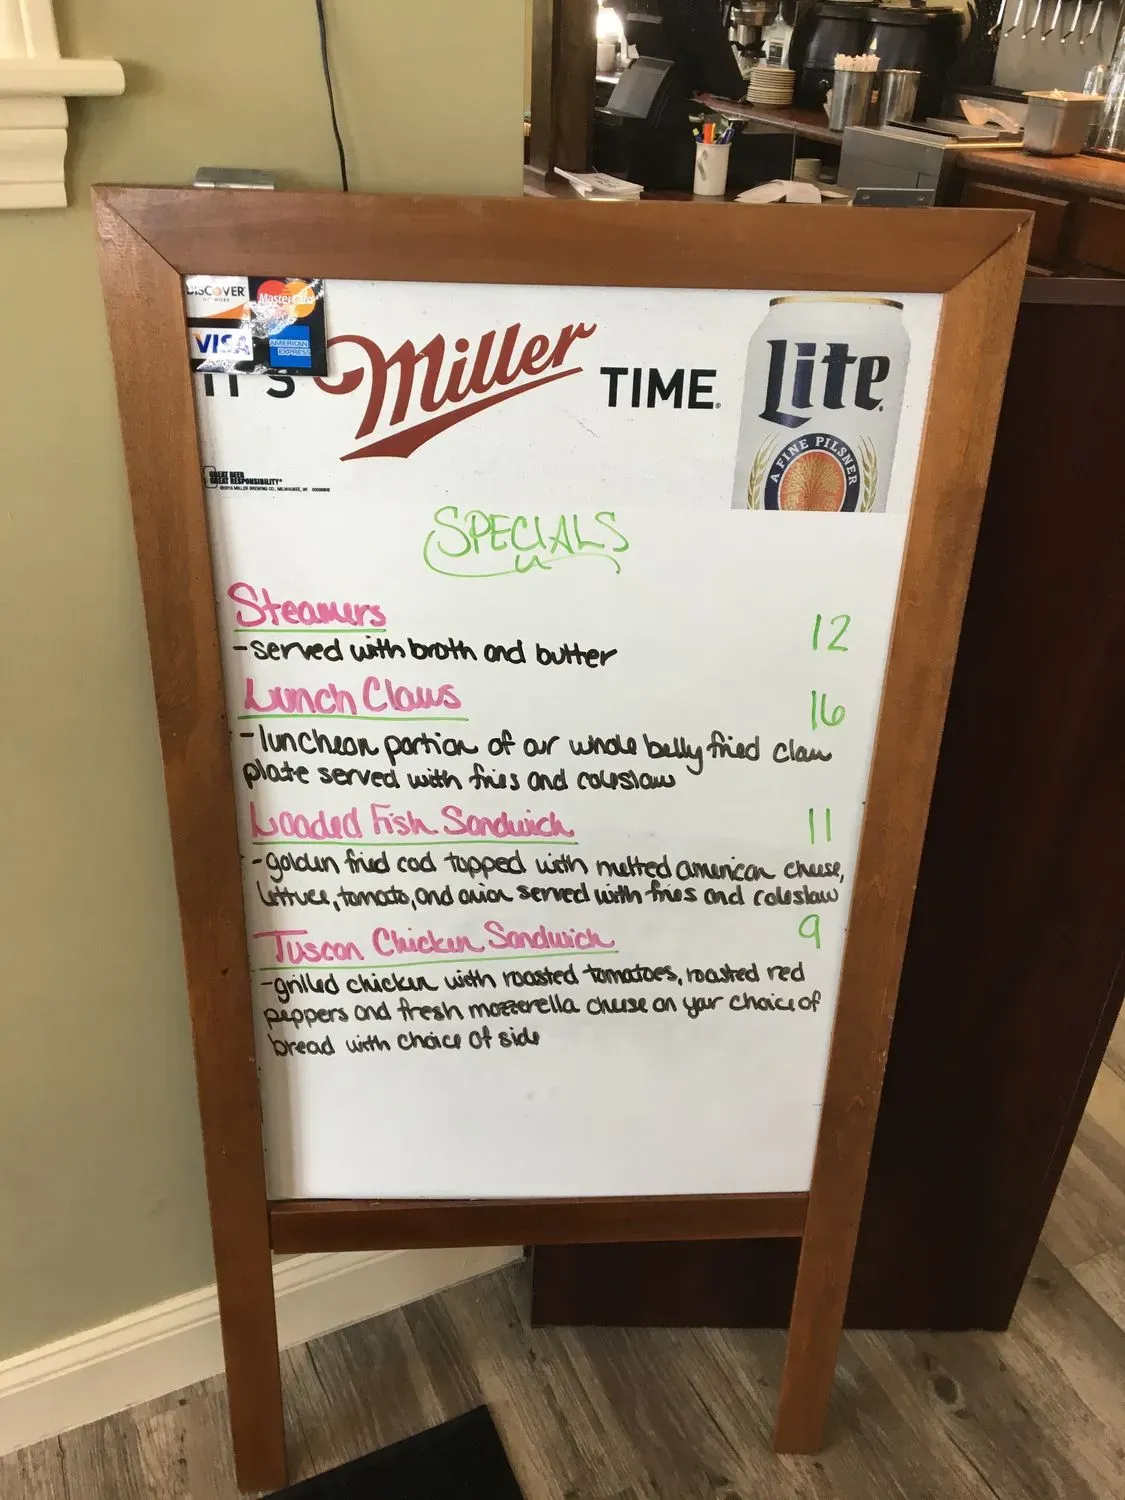 DISCOVER
NETWORK
MasterCard
VISA
AMERICAN
EXPRESS
IT'S Miller TIME.
Lite
A FINE PILSNER
GREAT BEER
GREAT RESPONSIBILITY
©2015 MILLER BREWING CO., MILWAUKEE, WI
SPECIALS
Steamers 12
-served with broth and butter
Lunch Clams 16
-luncheon portion of our whole belly fried clam
plate served with fries and coleslaw
Loaded Fish Sandwich 11
-golden fried cod topped with melted american cheese,
lettuce, tomato, and onion served with fries and coleslaw
Tuscan Chicken Sandwich 9
-grilled chicken with roasted tomatoes, roasted red
peppers and fresh mozzerella cheese on your choice of
bread with choice of side